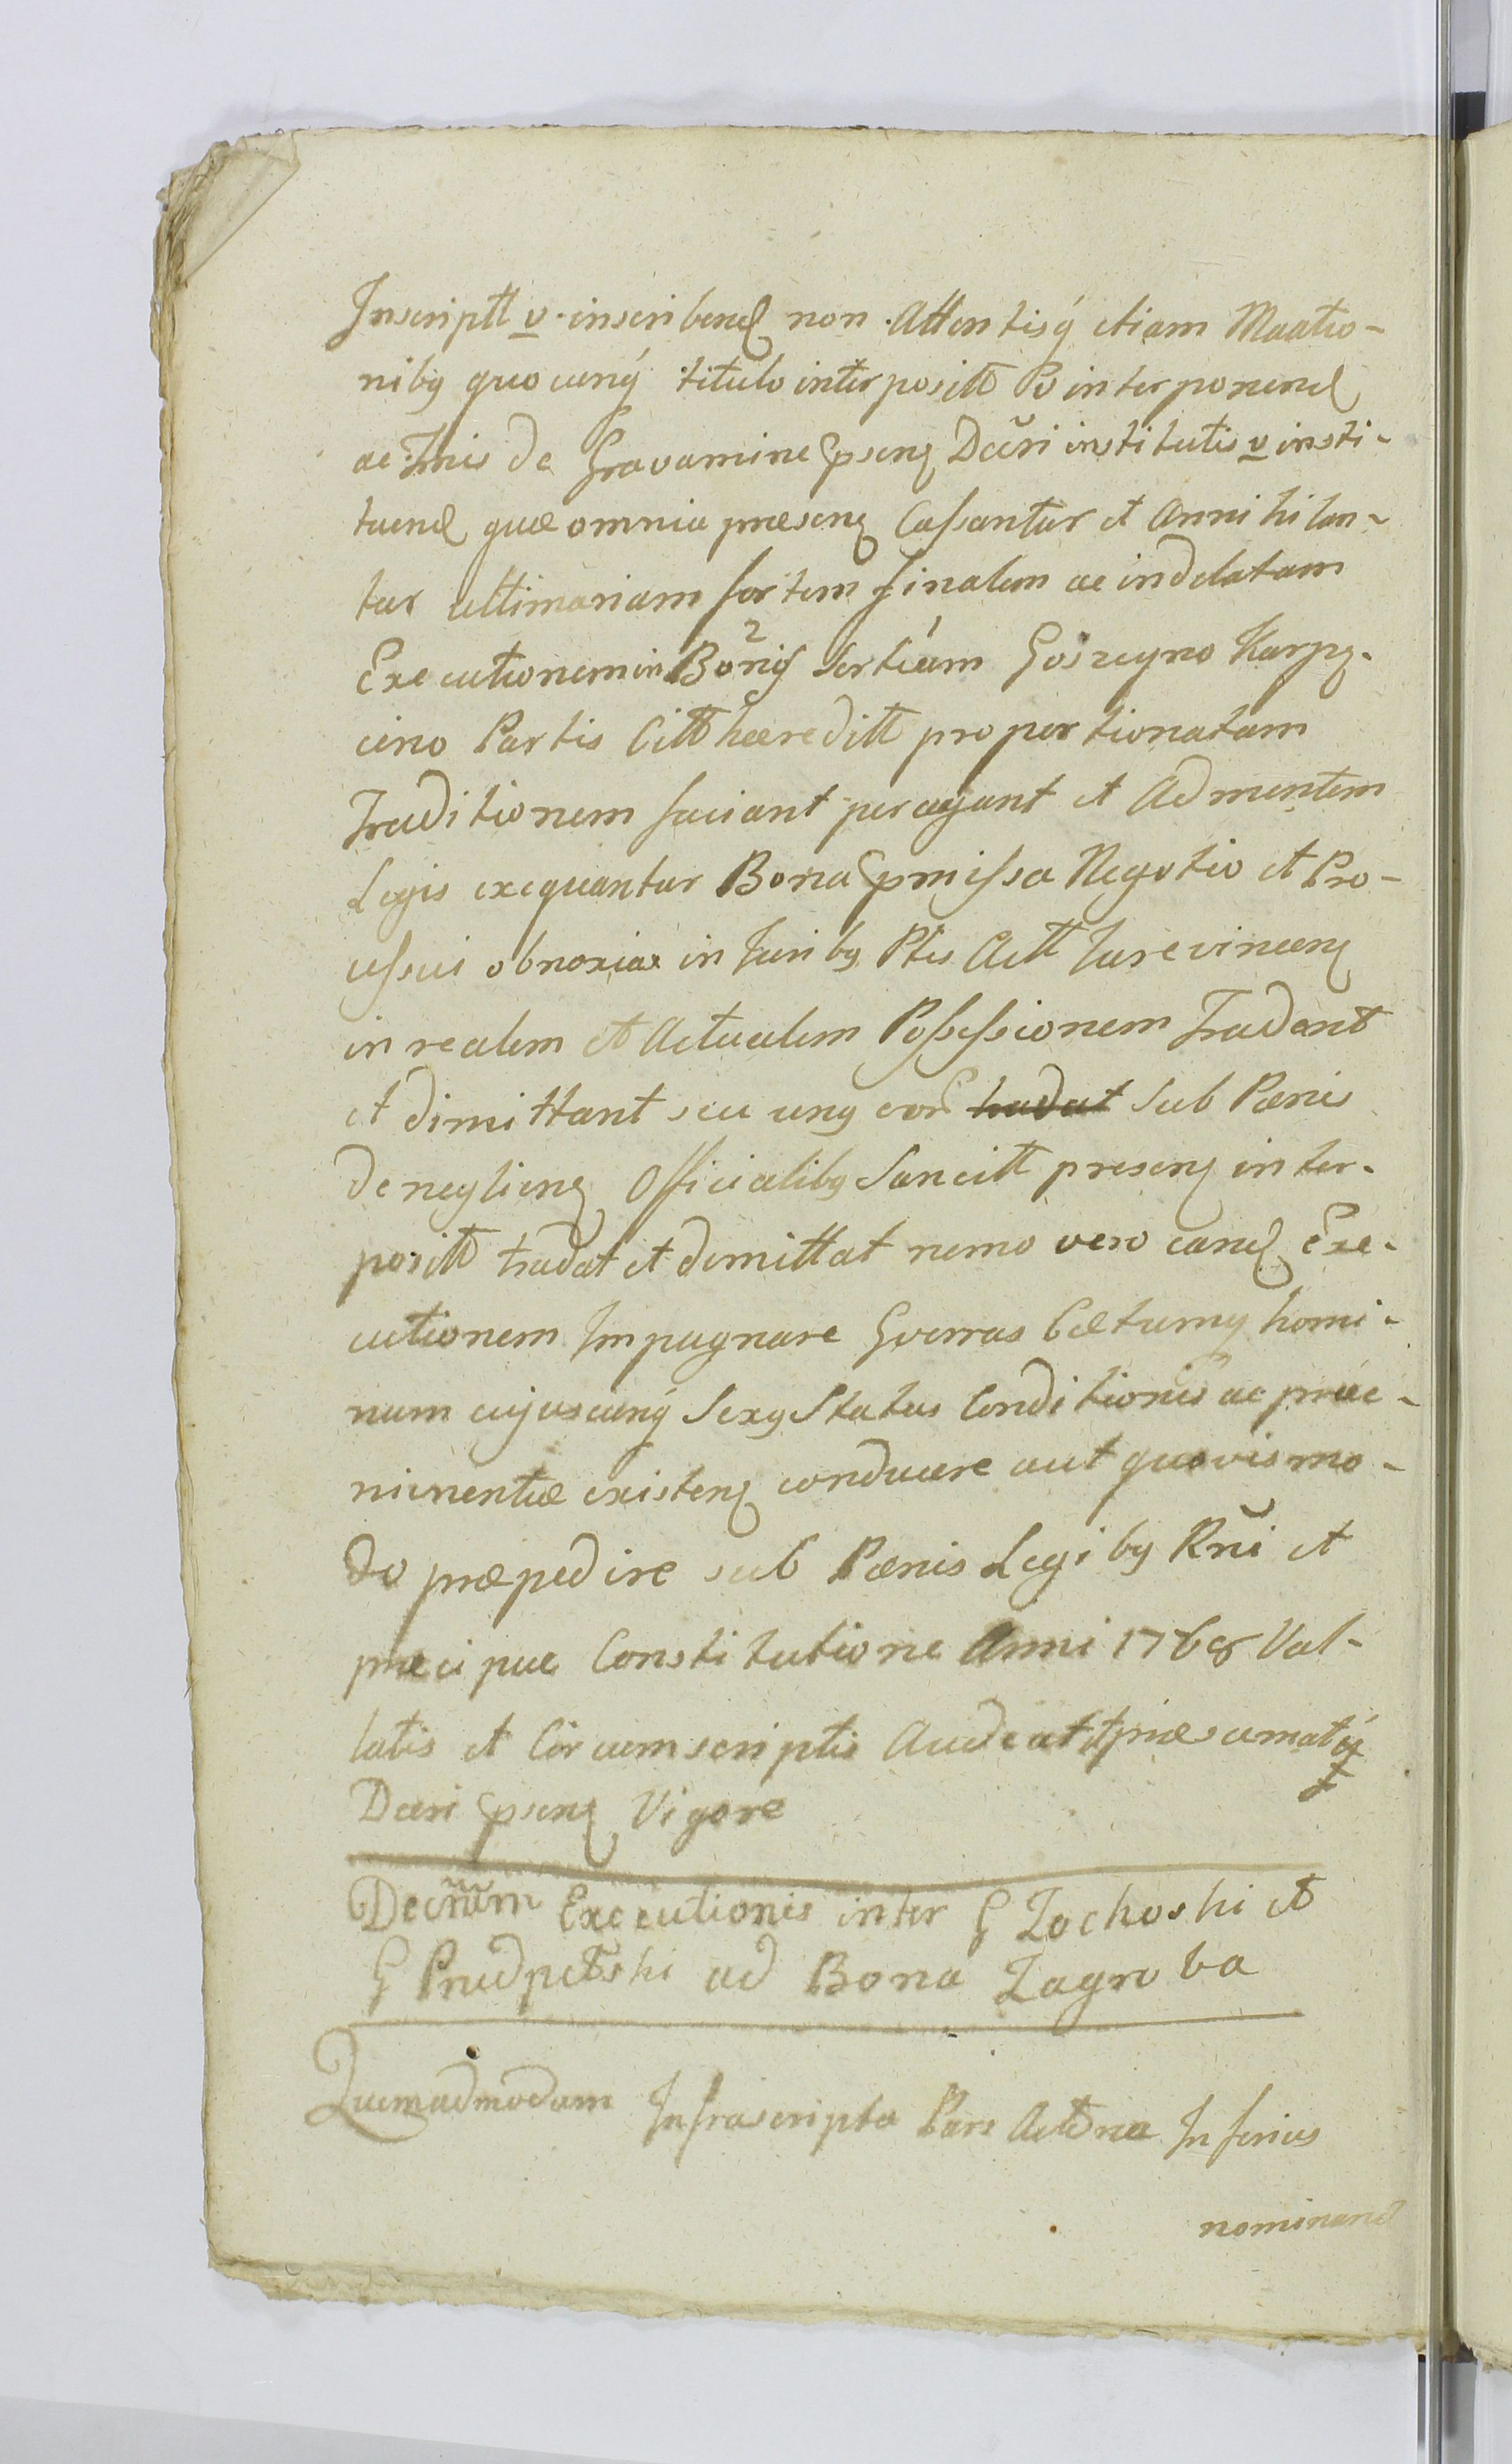 Inscriptt v. inscribend non Attentisq́ etiam Maatio-
nibq quocunq́ titulo interpositt v interponend
ac Tmis de Gravamine pseng Decri institutis v insti-
tuend quæ omnia præseng Cassantur et Annihilan-
tur ultimariam fortem finalem ac indelatam
Executionem in Bonis 2 tertiam 1 Goszczyno Karpq-
cino Partis Citt hæreditt proportionatam
Traditionem faciant peragant et Ad mentem
Legis exequantur Bona pmissa Negotio et Pro-
cessui obnoxia in Juribq Ptis Actt Jure vinceng
in realem et Actualem Possessionem Tradant
et dimittant seu unq eor tradat Sub Pænis
de negligeng Officialibq Sancitt preseng inter-
positt tradat et dimittat nemo vero eand Exe-
cutionem Impugnare Gverras Cætumq homi-
num cujuscunq́ Sexq Status Conditionis ac præe-
minentiæ existeng conducere aut quovismo-
do præpedire sub Pænis Legibq Rni et
præcipue Constitutione Anni 1768 Val-
latis et Circumscriptis Audeat præsumatq́
Decri pseng Vigore
Decretum Executionis inter G Zochoski et
G Przedpełski ad Bona Zagroba
Quemadmodum Infrascripta Pars Actorea Inferius
nominand